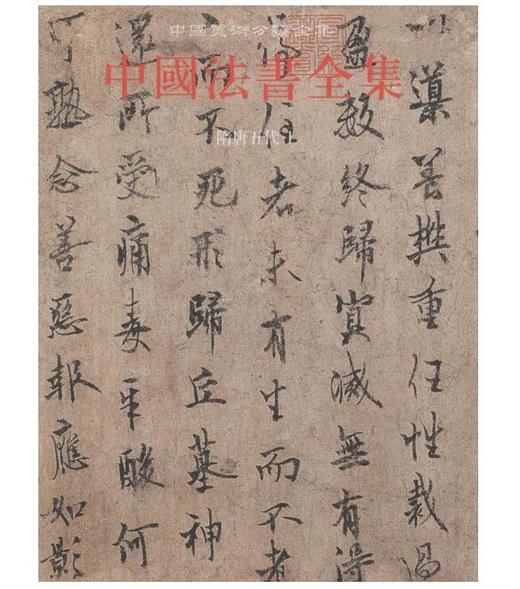 中國美術分類全集
中國法書全集
隋唐五代 1
導養樊重任性裁過
盈數終歸冥滅無有得
停住者未有生而不老
而不死形歸丘墓神
還所受痛毒辛酸何
可熟念善惡報應如影